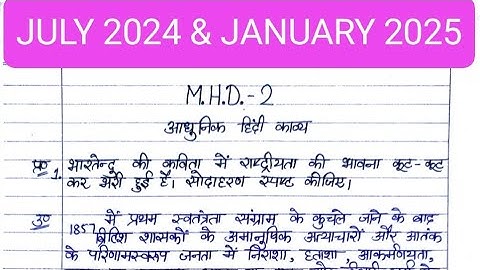 JULY 2024 & JANUARY 2025
M.H.D.-2
आधुनिक हिंदी काव्य
प्र० 1. भारतेन्दु की कविता में राष्ट्रीयता की भावना कूट-कूट
कर भरी हुई है। सोदाहरण स्पष्ट कीजिए।
उ० 1857 में प्रथम स्वतंत्रता संग्राम के कुचले जाने के बाद
ब्रिटिश शासकों के अमानुषिक अत्याचारों और आतंक
के परिणामस्वरूप जनता में निराशा, हताशा, अकर्मण्यता,